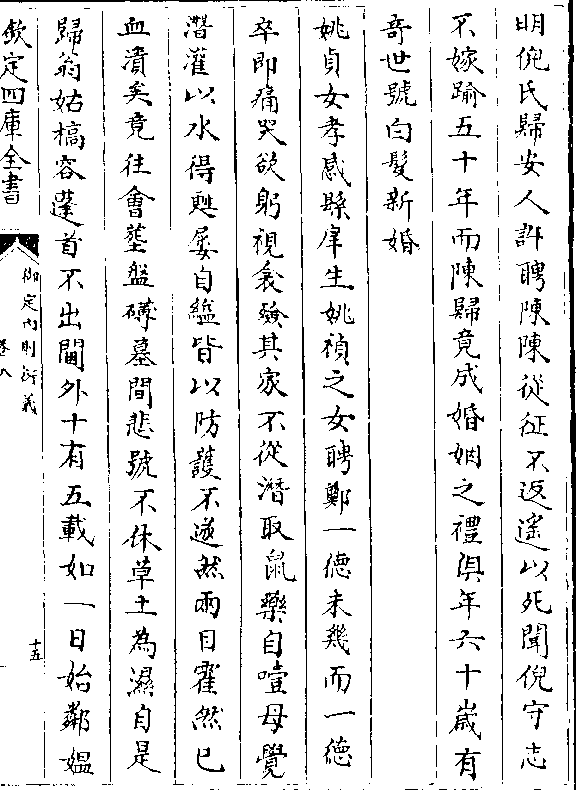 明倪氏歸安人許聘陳陳從征不返遙以死聞倪守志
不嫁踰五十年而陳歸竟成婚姻之禮俱年六十嵗有
奇世號白髮新婚
姚貞女孝感縣庠生姚禎之女聘鄭一德未幾而一德
卒即痛哭欲躬視衾殮其家不從潛取鼠藥自噎母覺
潛灌以水得甦屢自縊皆以防護不遂然兩目霍然已
血漬矣竟往會葬盤礴墓間悲號不休草土為濕自是
歸翁姑槁容蓬首不出閫外十有五載如一日始鄰媼
欽定四庫全書
御定內則衍義
卷八
十五